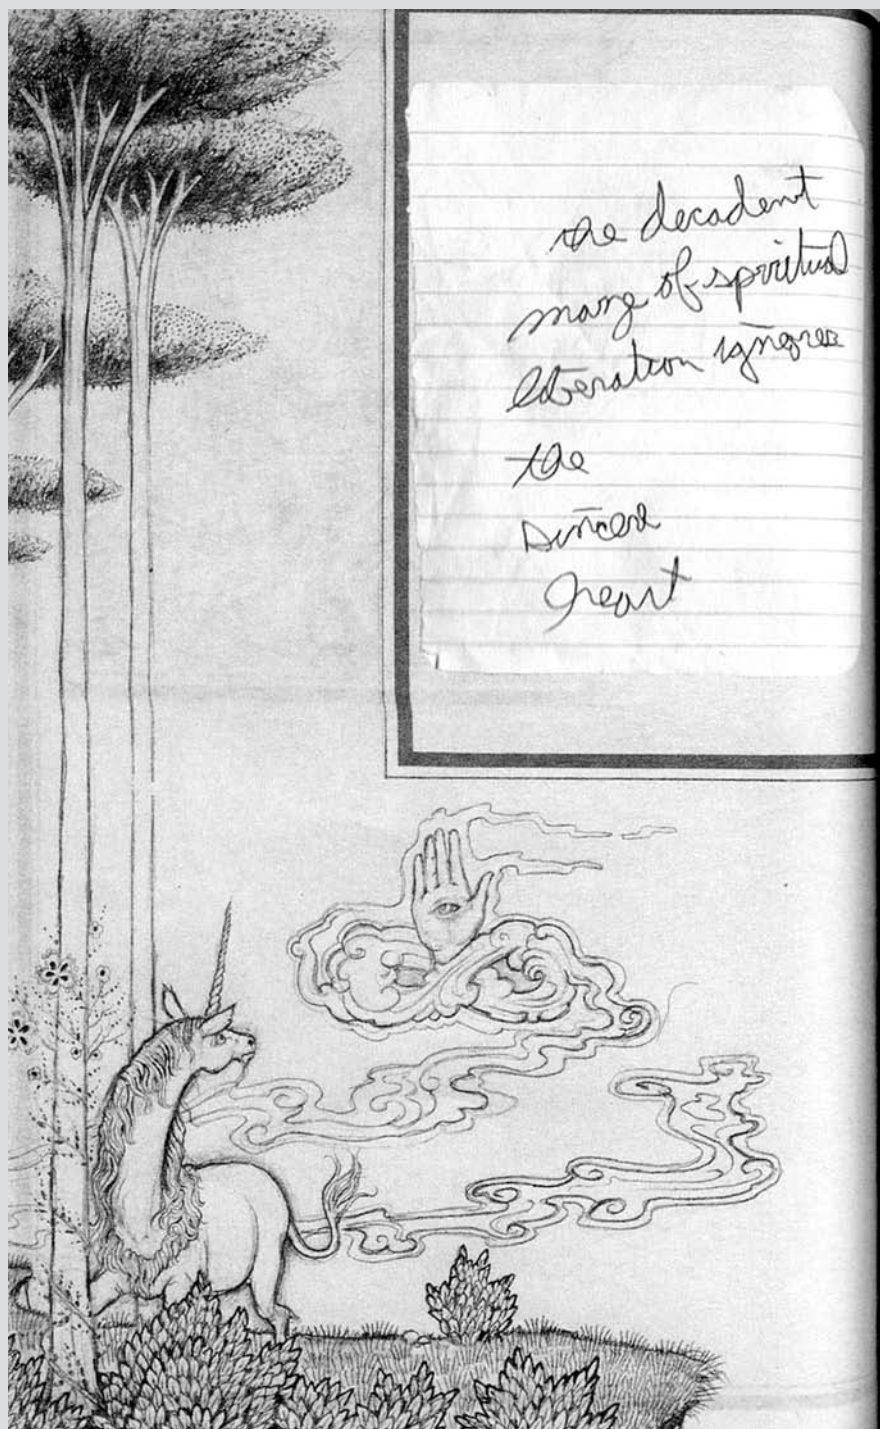 the decadent
maze of spiritual
liberation ignores
the
sincere
heart